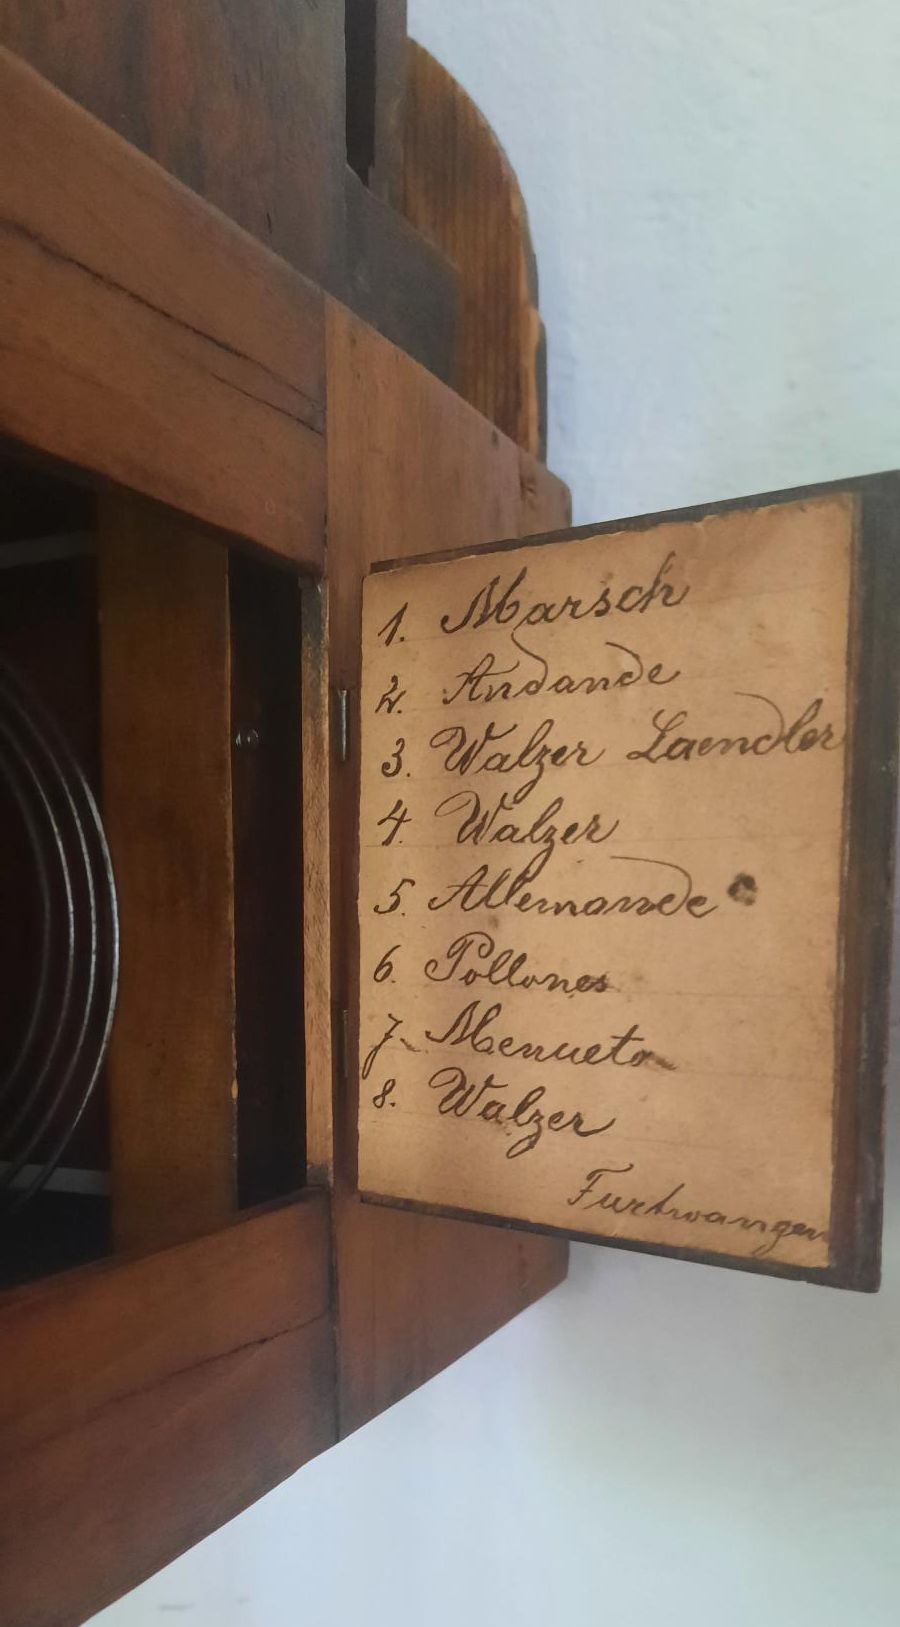 1. Marsch
2. Andande
3. Walzer Laendler
4. Walzer
5. Allemande
6. Pollones
7. Menueto
8. Walzer
Furtwangen